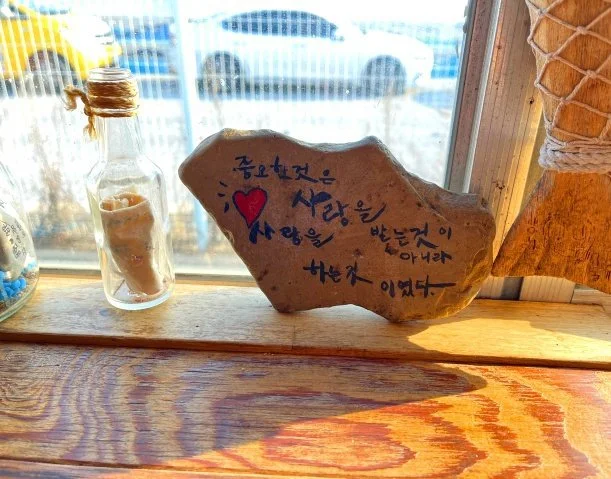 중요한것은
사랑을
받는것이
아니라
사랑을
하는것 이었다.